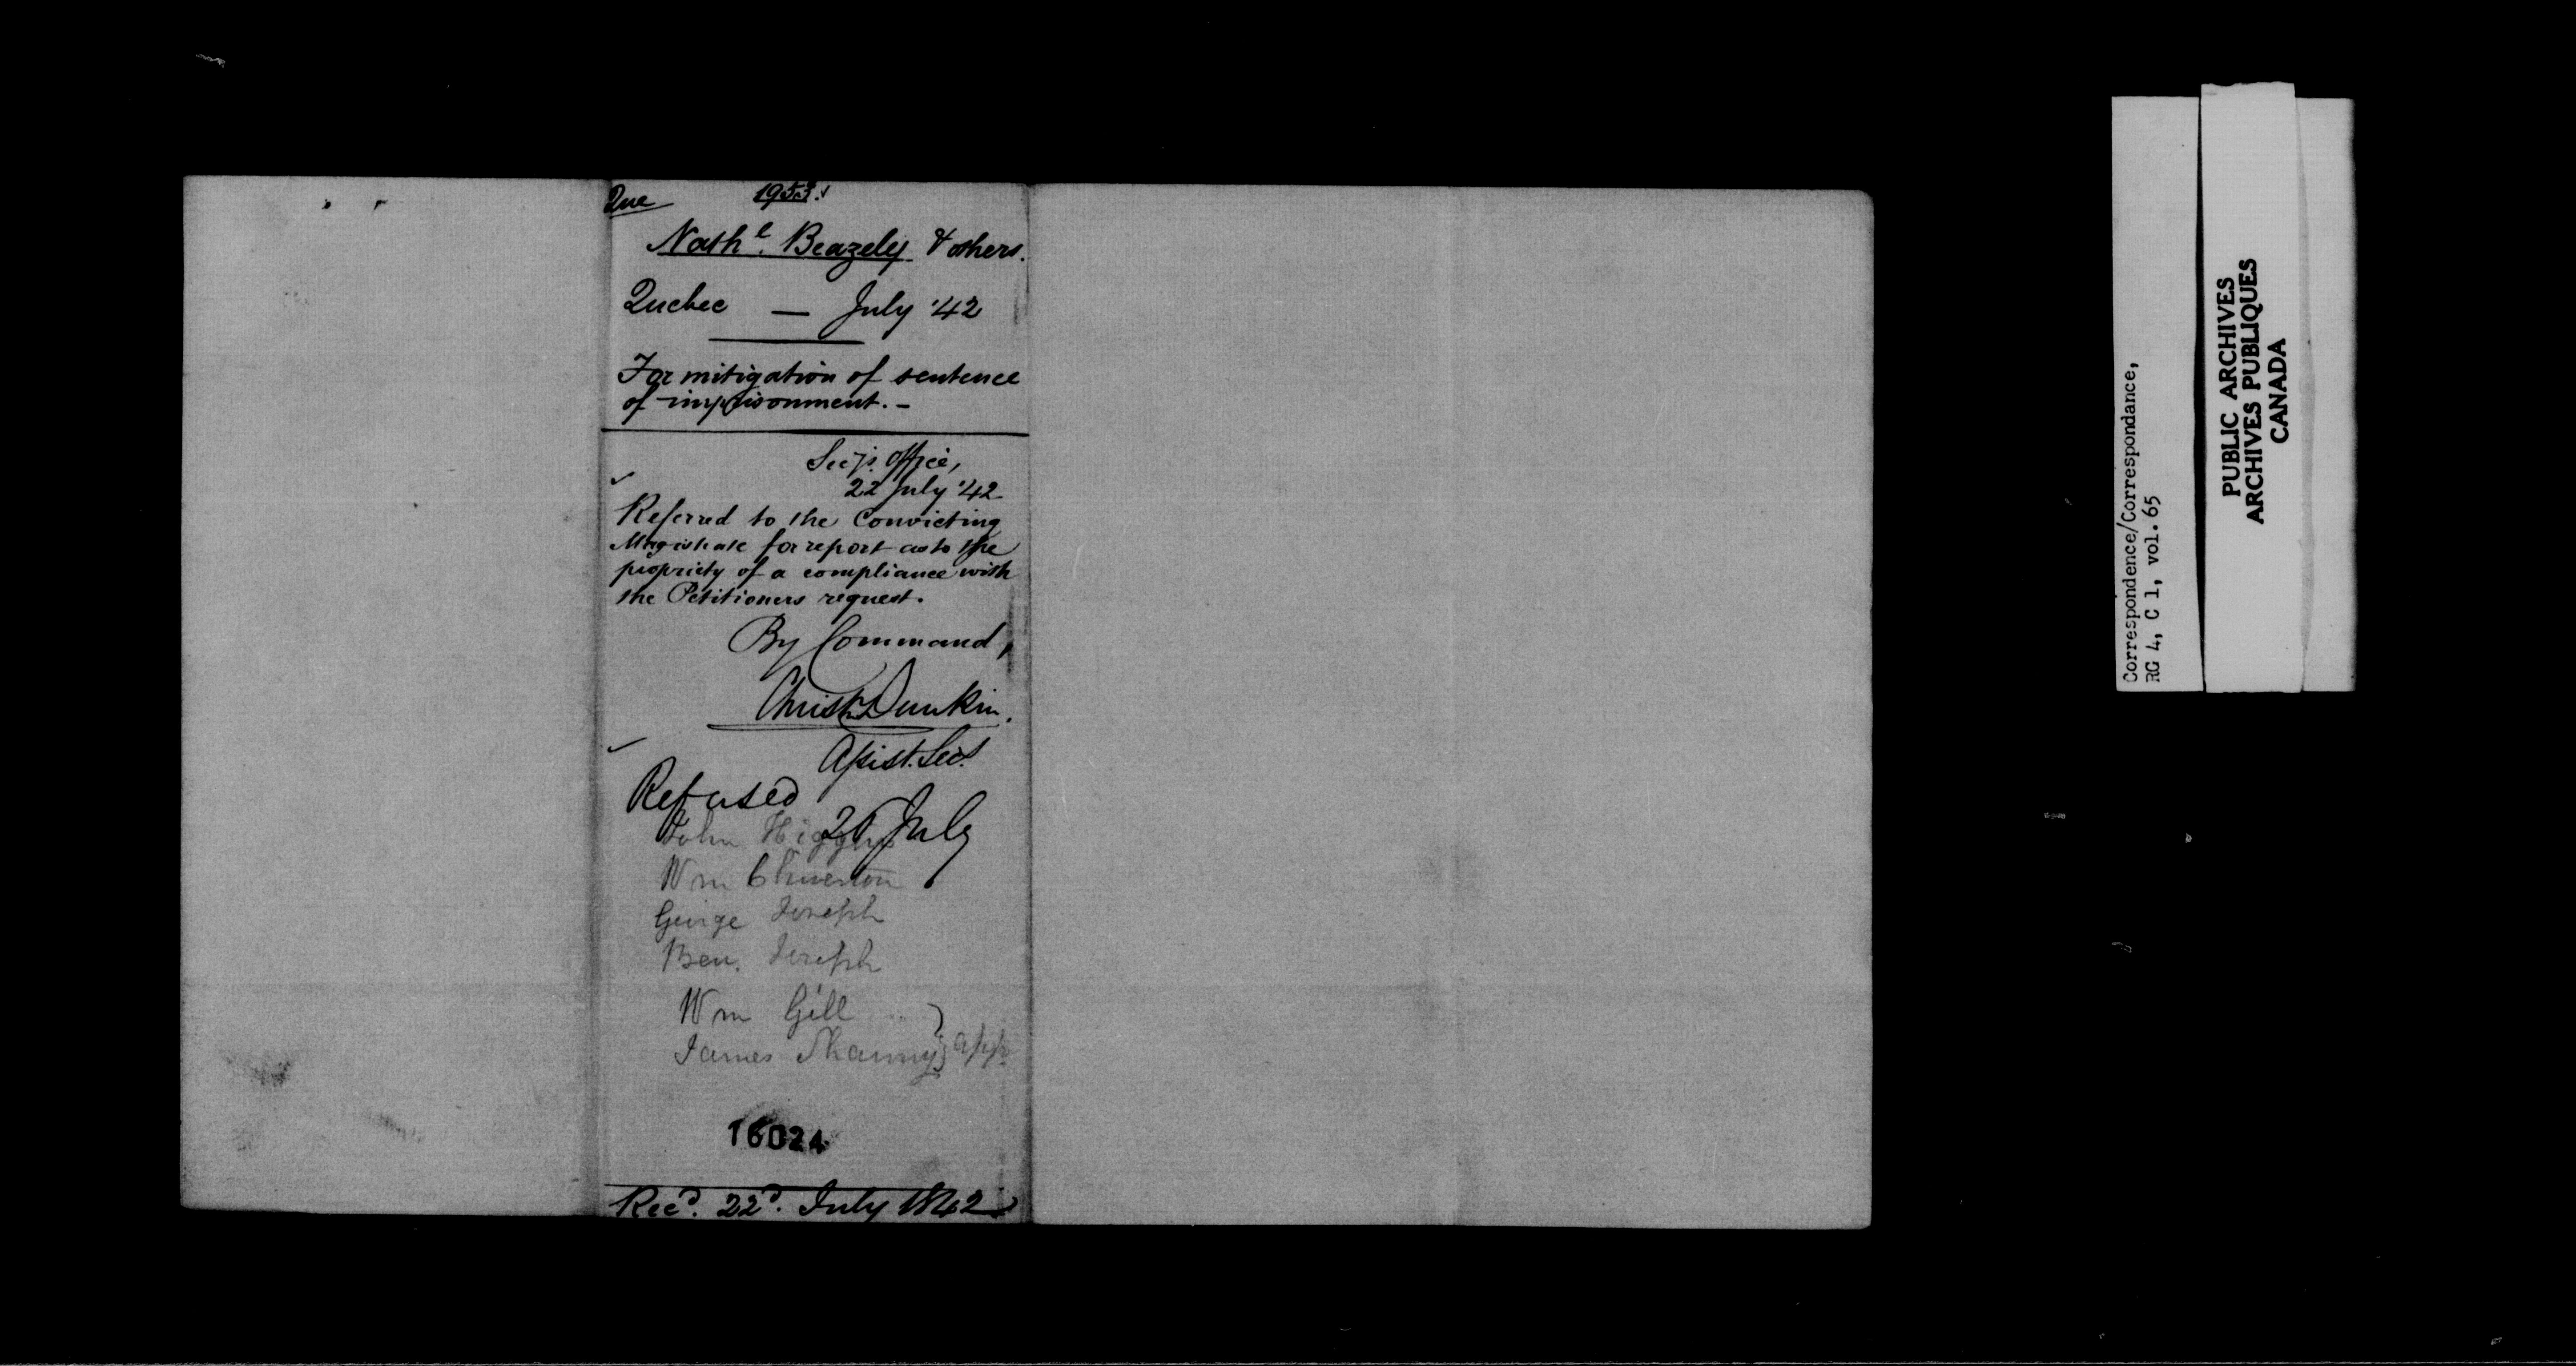 Que 1953.
Nathl. Beazely & others.
Quebec — July '42
For mitigation of sentence
of imprisonment. -
Secy's. Office,
22 July '42
Referred to the Convicting
Magistrate for report as to the
propriety of a compliance with
the Petitioners request.
By Command,
Christr. Dunkin.
Assist. Secy.
Refused
26 July
John Higgins
Wm
George Joseph
Ben. Joseph
Wm Gill
James
16024
Recd. 22d. July 1842
Correspondence/Correspondance,
RG 4, C 1, vol. 65
PUBLIC ARCHIVES
ARCHIVES PUBLIQUES
CANADA